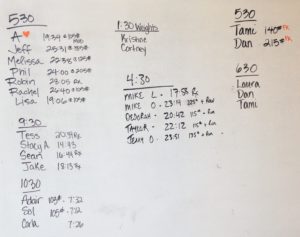 530
A ♥ 19:34 #105# MOD
Jeff 25:31 #135#
Melissa 22:38
Phil 24:00 #205#
Robin 23:05 RX
Rachel 24:40 #105#
Lisa 19:06 #105#
9:30
Tess 20:51 RX
Stacy A. 14:43
Sean 16:44 Rx
Jake 18:13 Rx
1030
Adair 103# - 7:32
Sol 105# - 7:12
Carla 7:26
1:30 Weights
Kristine
Cortney
4:30
MIKE L - 17:58 Rx
MIKE O - 23:19
DEBORAH - 20:42 115# + Run
TAYLOR - 22:12 115# + Rx
JENY O - 23:51 135# + Run
530
Tami 140# PR
Dan 215# PR
630
Laura
Dan
Tami